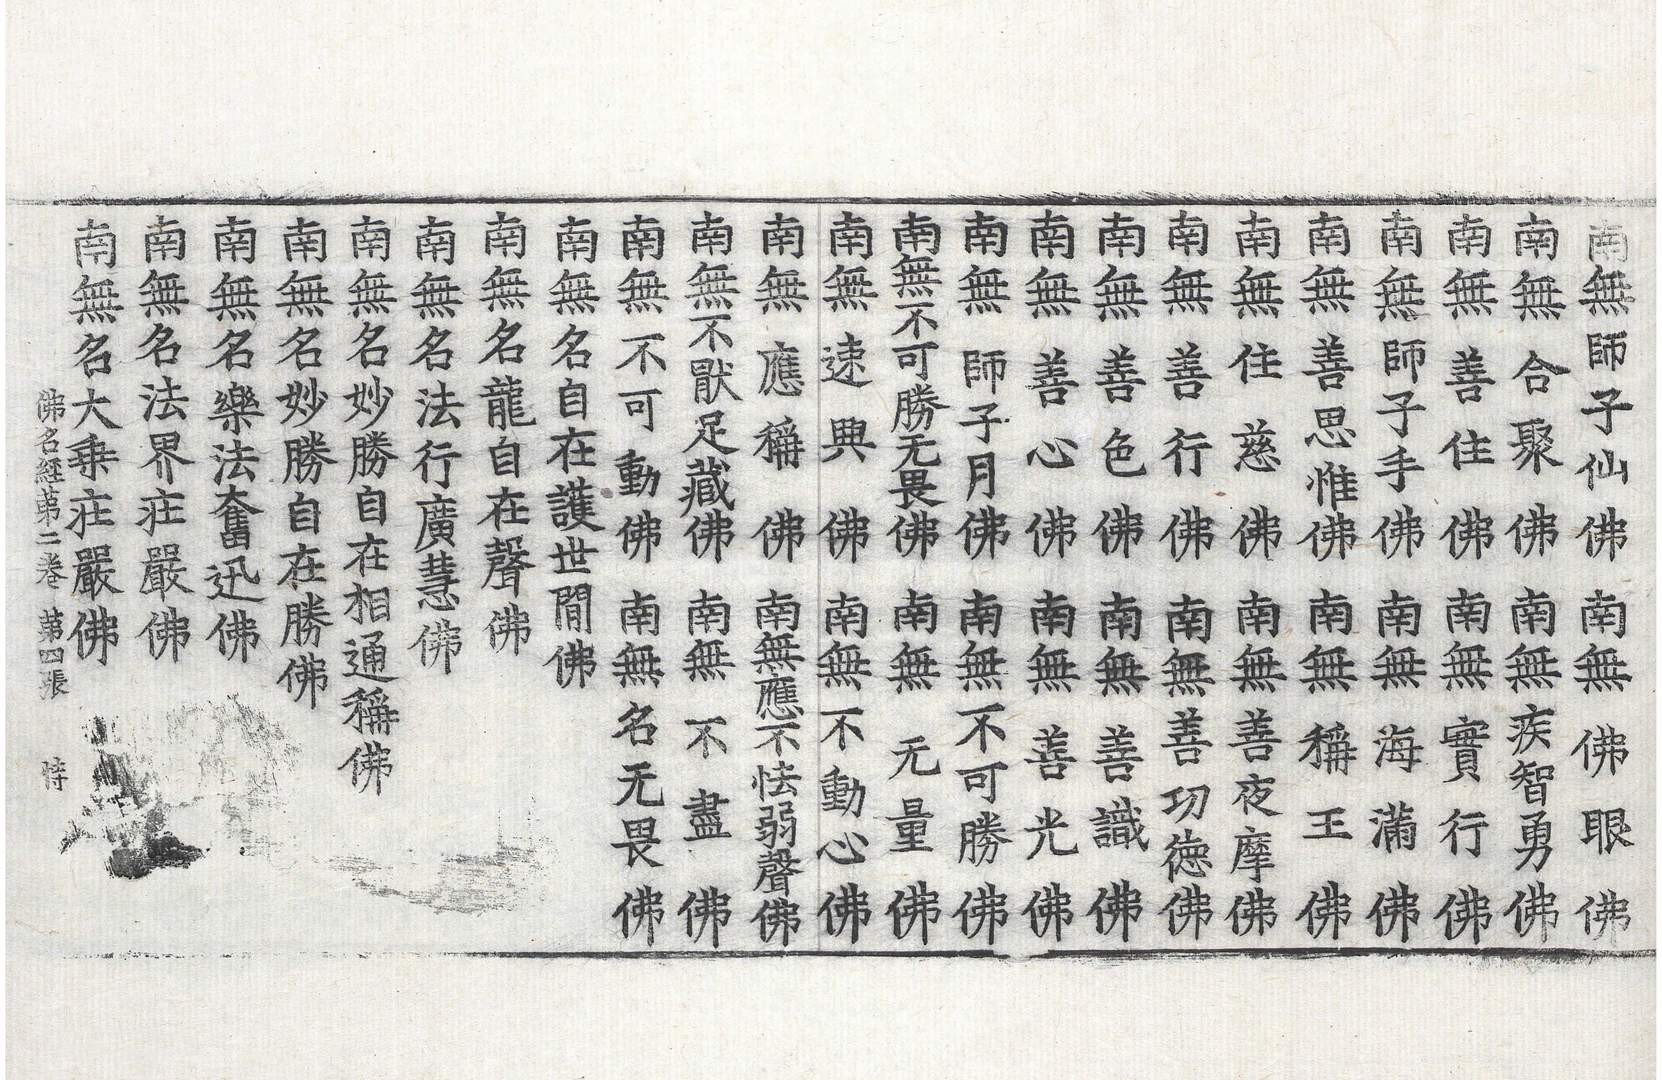 南無師子仙佛南無佛眼佛
南無合聚佛南無疾智勇佛
南無善住佛南無實行佛
南無師子手佛南無海滿佛
南無善思惟佛南無稱王佛
南無住慈佛南無善夜摩佛
南無善行佛南無善功徳佛
南無善色佛南無善識佛
南無善心佛南無善光佛
南無師子月佛南無不可勝佛
南無不可勝无畏佛南無无量佛
南無速與佛南無不動心佛
南無應稱佛南無應不怯弱聲佛
南無不猒足藏佛南無不盡佛
南無不可動佛南無名无畏佛
南無名自在護世間佛
南無名龍自在聲佛
南無名法行廣慧佛
南無名妙勝自在相通稱佛
南無名妙勝自在勝佛
南無名樂法奮迅佛
南無名法界莊嚴佛
南無名大乗莊嚴佛
佛名經苐二卷 第四張